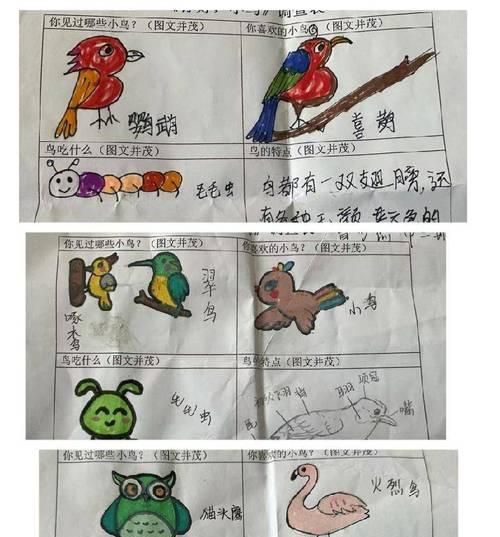 小鸟》调查表
你见过哪些小鸟？（图文并茂）
你喜欢的小鸟？（图文并茂）
鹦鹉
喜鹊
鸟吃什么（图文并茂）
鸟的特点（图文并茂）
毛毛虫
鸟都有一双翅膀，还
你见过哪些小鸟？（图文并茂）
你喜欢的小鸟？（图文并茂）
啄木鸟
翠鸟
小鸟
鸟吃什么（图文并茂）
鸟的特点（图文并茂）
毛毛虫
嘴
你见过哪些小鸟？（图文并茂）
你喜欢的小鸟？（图文并茂）
猫头鹰
火烈鸟